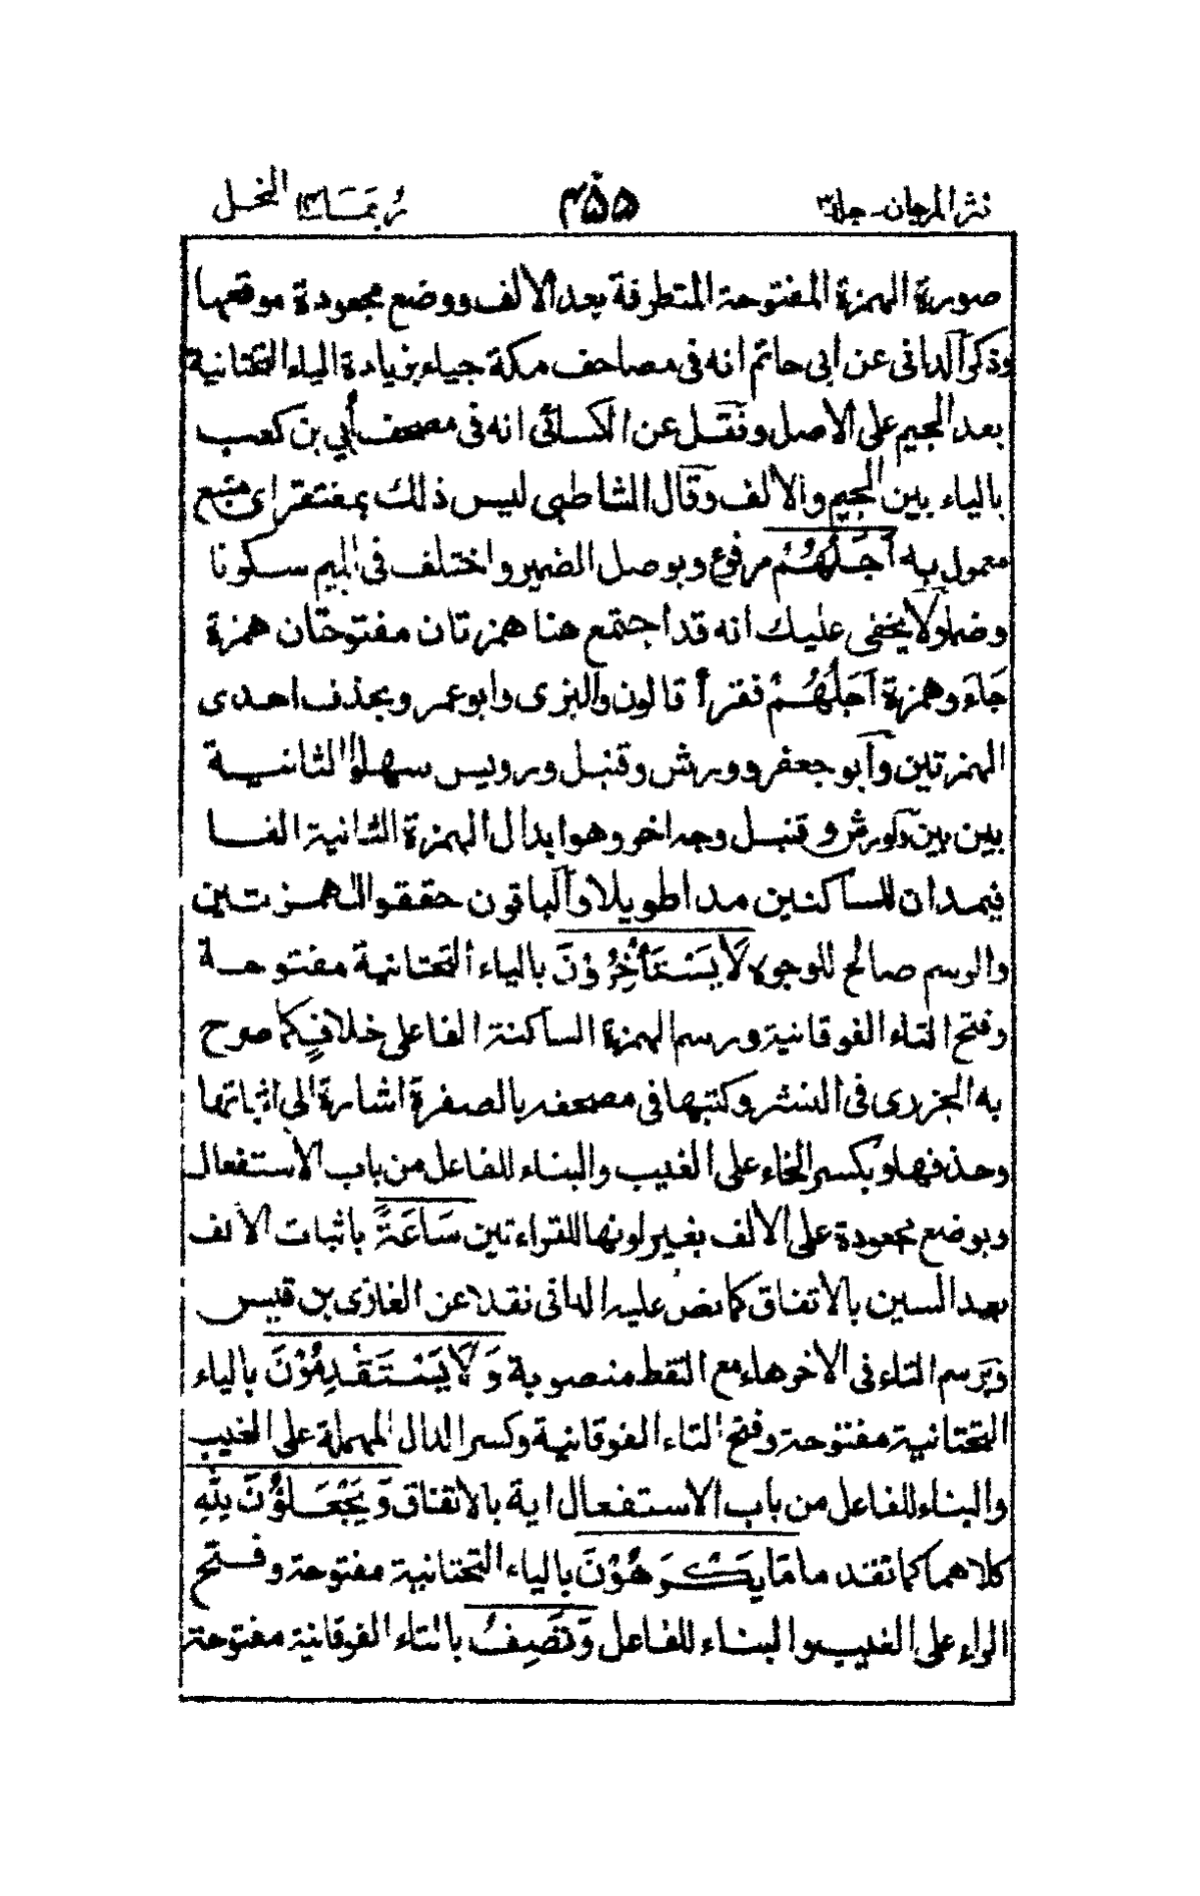 نثر المرجان-جلد٣ ۴۵۵ رُبمَا١٤ النحل
صورة الهمزة المفتوحة المتطرفة بعد الالف ووضع مجعودة موقعها
وذكر الدانى عن ابى حاتم انه فى مصاحف مكة جياء بزيادة الياء التحتانية
بعد الجيم على الاصل ونقل عن الكسائى انه فى مصحف أبي بن كعب
بالياء بين الجيم والالف وقال الشاطبى ليس ذلك بمفتقر اى متبع
معمول به اَجَلُهُمْ مرفوع وبوصل الضمير واختلف فى الميم سكونا
وضما ولا يخفى عليك انه قد اجتمع هنا همزتان مفتوحتان همزة
جَاءَ وهمزة اَجَلُهُمْ فقرأ قالون والبزى وابو عمرو بحذف احدى
الهمزتين وابو جعفر وورش وقنبل ورويس سهلوا الثانية
بين بين ولورش وقنبل وجه اخر وهو ابدال الهمزة الثانية الفا
فيمدان للساكنين مدا طويلا والباقون حققوا الهمزتين
والرسم صالح للوجوه لَا يَسْتَأْخِرُوْنَ بالياء التحتانية مفتوحة
وفتح التاء الفوقانية ورسم الهمزة الساكنة الفا على خلاف كما صرح
به الجزرى فى النشر وكتبها فى مصحفه بالصفرة اشارة الى اثباتها
وحذفها وبكسر الخاء على الغيب والبناء للفاعل من باب الاستفعال
وبوضع مجعودة على الالف بغير لونها للقراءتين سَاعَةً باثبات الالف
بعد السين بالاتفاق كما نص عليه الدانى نقلا عن الغازى بن قيس
وبرسم التاء فى الاخر هاء مع النقط منصوبة وَلَا يَسْتَقْدِمُوْنَ بالياء
التحتانية مفتوحة وفتح التاء الفوقانية وكسر الدال المهملة على الغيب
والبناء للفاعل من باب الاستفعال اية بالاتفاق وَيَجْعَلُوْنَ لِلّٰهِ
كلاهما كما تقدم مَا يَكْرَهُوْنَ بالياء التحتانية مفتوحة وفتح
الراء على الغيب والبناء للفاعل وَتَصِفُ بالتاء الفوقانية مفتوحة